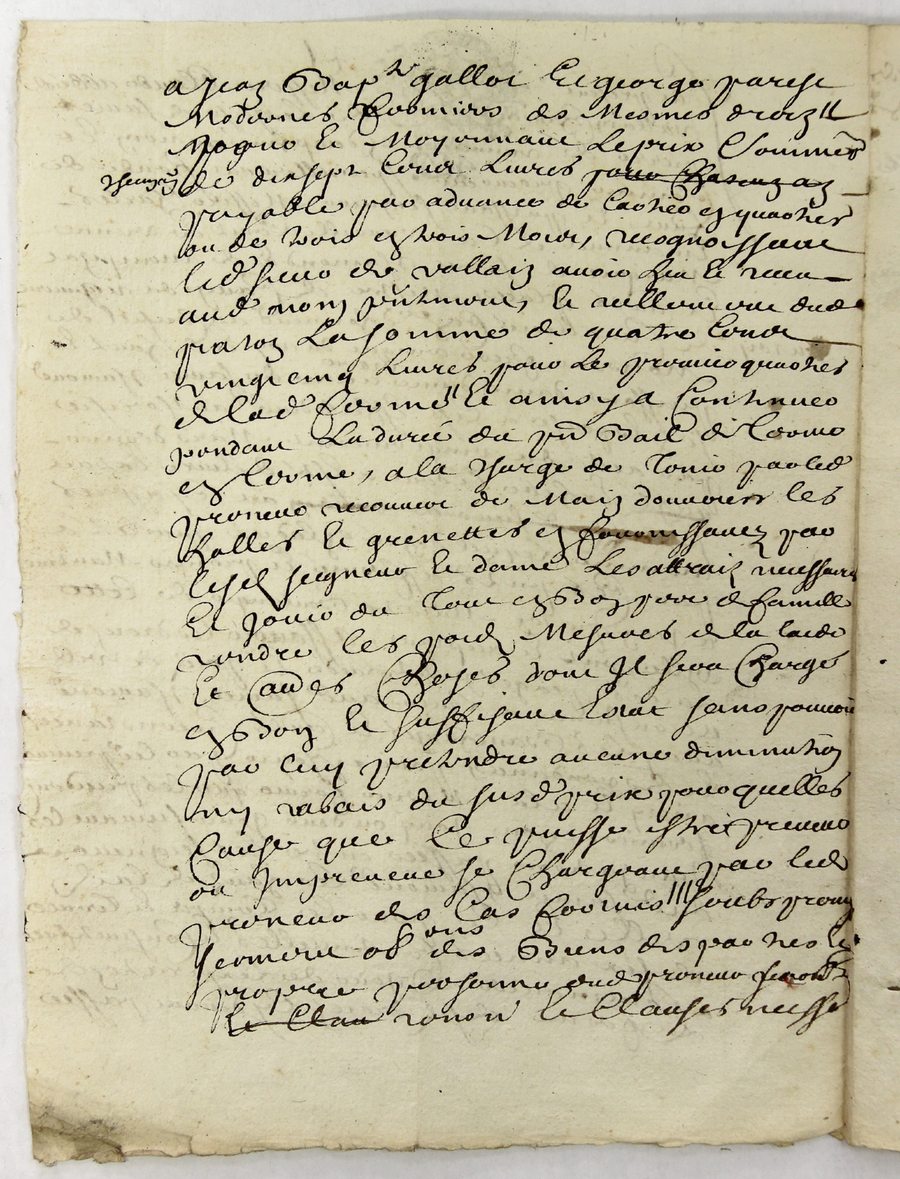 a Jean Bapt galloi Et george paresi
Modernes fermiers des Mesmes droiz
Mogno Et Moyennant Le prix Somme
de dixsept Cent Livres pour Chascun an
payable par advance de Cartier en quartier
ou de trois en trois Mois, recognoissant
led sieur de vallaiz avoir heu et receu
aud nom presentement, et reellement dud
preneur La somme de quatre Cent
vingt cinq Livres pour Le premier quartier
de lad ferme Et ainsy a Continuer
pendant La durée du pnt Bail de ferme
en ferme, a la charge de tenir par led
preneur recouvert de Main d'ouvriers les
halles Et grenettes en fournissant par
lesd seigneur Et dame Les attraiz necessaires
Et jouir du Tout en Bon pere de famille
rendre les poids Mesures de la leide
Et autres Choses dont Il sera Chargé
en Bon Et suffisant Estat sans pouvoir
par luy pretendre aucune diminution
ny rabais du susd prix pour quelles
Cause que Ce puisse estre preveue
ou Impreveue se Chargeant par led
preneur des Cas fortuis soubs promes
serment obons des Biens des parties Et
propre personne dud preneur
Et Clau renon Et Clauses necesse